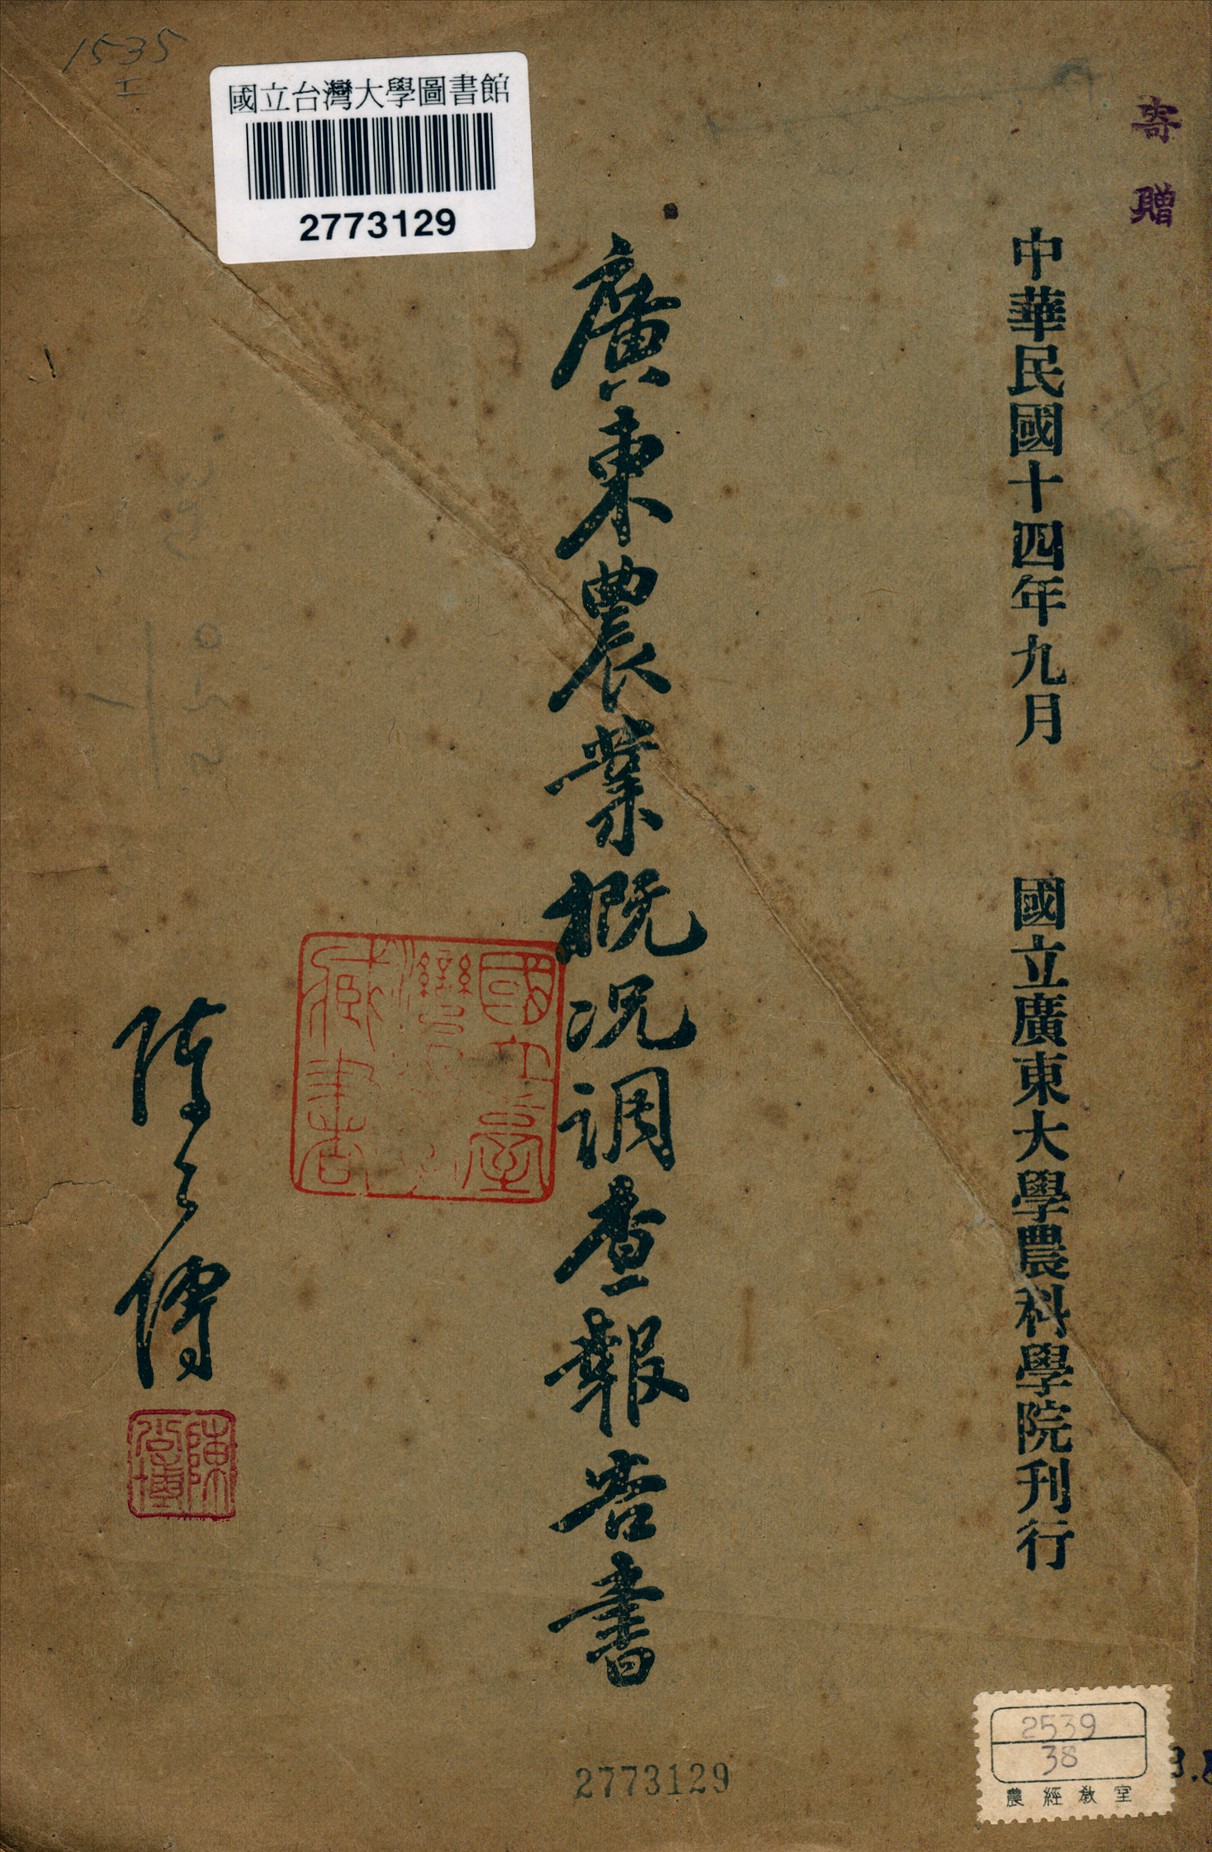 寄贈
中華民國十四年九月 國立廣東大學農科學院刊行
廣東農業概況調查報告書
陳公博
陳公博
國立臺灣大學藏書
國立台灣大學圖書館
2773129
1535
I
2773129
2539
38
農經教室